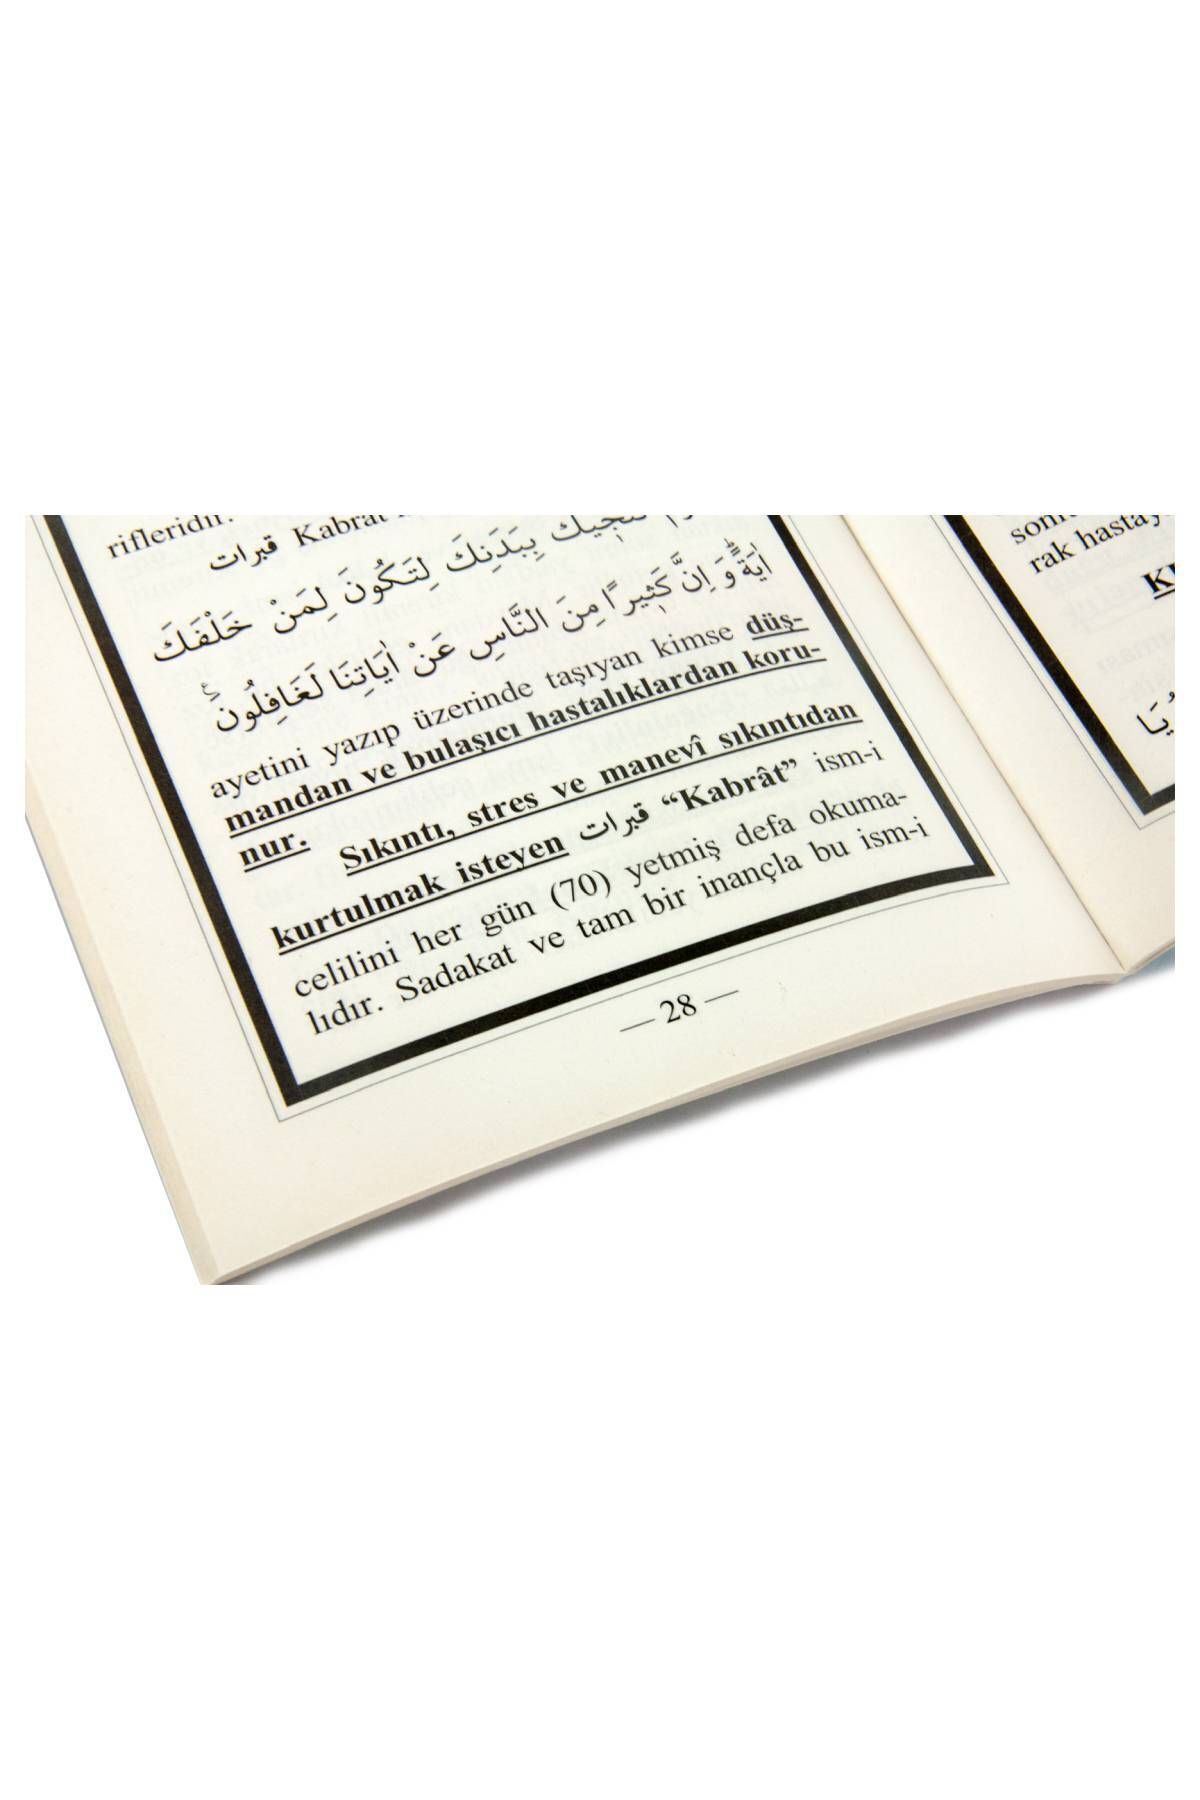 rifleridir.
قبرات Kabrat
نُنَجِّيكَ بِبَدَنِكَ لِتَكُونَ لِمَنْ خَلْفَكَ
اٰيَةً وَاِنَّ كَثِيرًا مِنَ النَّاسِ عَنْ اٰيَاتِنَا لَغَافِلُونَ
ayetini yazıp üzerinde taşıyan kimse düş-
mandan ve bulaşıcı hastalıklardan koru-
nur.
Sıkıntı, stres ve manevî sıkıntıdan
kurtulmak isteyen قبرات “Kabrât” ism-i
celilini her gün (70) yetmiş defa okuma-
lıdır. Sadakat ve tam bir inançla bu ism-i
— 28 —
rak hastay